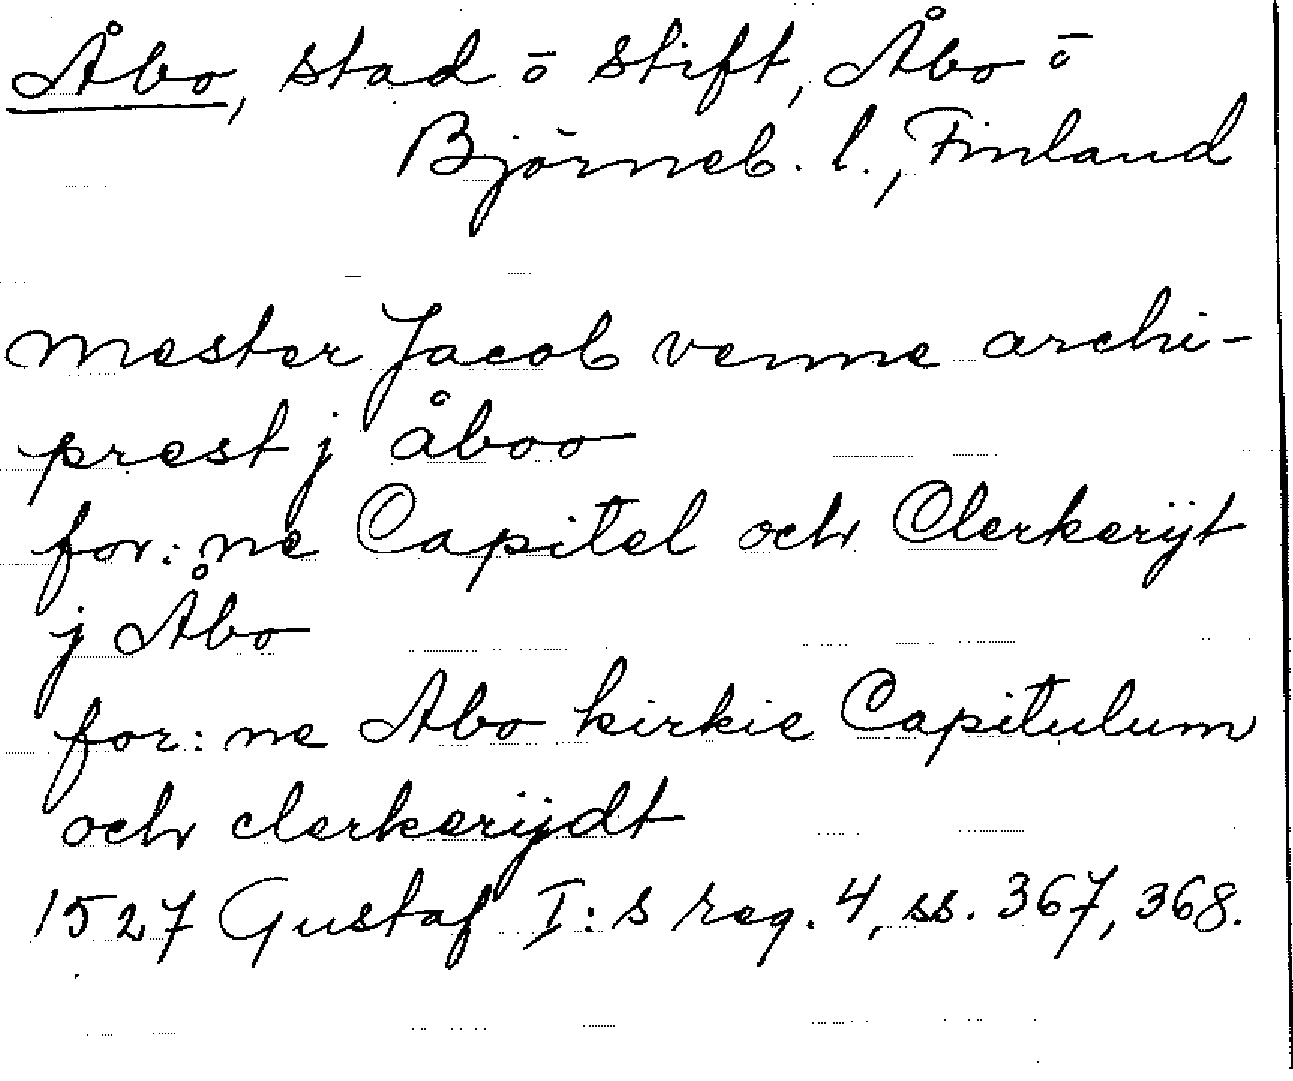 Åbo, stad o stift, Åbo o
Björneb. l., Finland
mester Jacob venne archi-
prest j åboo
for:ne Capitel och Clerkerijt
j Åbo
for:ne Abo kirkie Capitulum
och clerkerijdt
1527 Gustaf I:s reg. 4, ss. 367, 368.